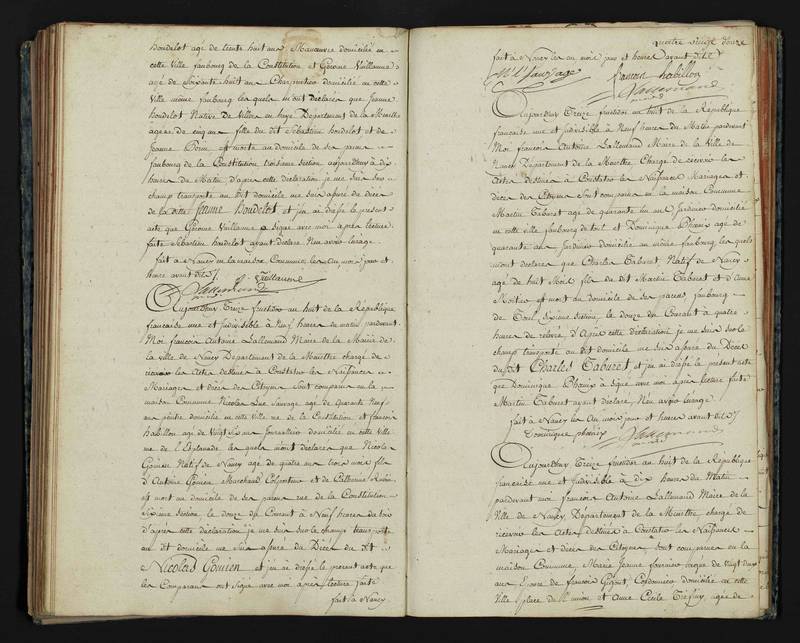 houdelot agé de trente huit ans Manœuvre domicilié en
cette ville faubourg de la Constitution et Gérome Vuillaume
agé de soixante huit ans Charpentier domicilié en cette
Ville même faubourg les quels m'ont déclarés que Jeanne
houdelot Native de Villers en haye Departement de la Meurthe
agée de cinq ans fille du dit Sébastien houdelot et de
Jeanne est morte au domicile de ses pere
faubourg de la Constitution troisieme section aujourdhuy à dix
heures du Matin d'après cette déclaration je me suis sur le
champ transporté au dit domicile me suis assuré du décès
de la dite Jeanne Houdelot et j'en ai dressé le présent
acte que Gérome Vuillaume a signé avec moi après lecture
faite Sébastien houdelot ayant declaré Nen avoir l'usage
fait à Nancy en la maison Commune les An, mois jour et
heure avant dits
Vuillaume
Lallemand
Aujourdhuy Treize fructidor an huit de la République
française une et Indivisible à Neuf heures du matin pardevant
Moi françois Antoine Lallemand Maire de la Mairie de
la ville de Nancy Departement de la Meurthe chargé de
recevoir les Actes destinés à Constater les Naissances
Mariages et décès des Citoyens Sont comparus en la
maison Commune Nicolas Le Sauvage agé de Quarante Neuf
ans peintre domicilié en cette ville rue de la Constitution et francois
habillon agé de Vingt Six ans Journallier domicilié en cette ville
rue de l'Esplanade les quels m'ont déclarés que Nicolas
Gouvien Natif de Nancy agé de quatre ans trois mois fils
d'Antoine Gouvien Marchand Colporteur et de Catherine
est mort au domicile de ses pere rue de la Constitution
Sixieme section le douze du Courant à Neuf heures du soir
d'après cette déclaration je me suis sur le champ transporté
au dit domicile me suis assuré du Décès du dit
Nicolas Gouvien et j'en ai dressé le présent acte que
les Comparans ont signé avec moi après lecture faite
fait à Nancy
quatre vingt douze
fait à Nancy les an mois jour et heure avant dits
N. L. Sauvage francoi habillon
Lallemand
Aujourdhuy Treize fructidor an huit de la République
française une et indivisible à Neuf heures du Matin pardevant
Moi françois Antoine Lallemand Maire de la Ville de
Nancy Departement de la Meurthe Chargé de recevoir les
Actes destinés à Constater les Naissances Mariages et
décès des Citoyens Sont comparus en la maison Commune
Martin Taburet agé de quarante un ans Jardinier domicilié
en cette ville faubourg de toul et Dominique Phœnix agé de
quarante ans Jardinier domicilié au même faubourg les quels
m'ont déclarés que Charles Taburet Natif de Nancy
agé de huit Mois fils du dit Martin Taburet et d'Anne
est mort au domicile de ses peres faubourg
de Toul, Sixieme Section, le douze du Courant à quatre
heures de relevée, d'Après cette déclaration je me suis sur le
champ transporté au dit domicile me suis assuré du Décès
du dit Charles Taburet et j'en ai dressé le présent acte
que Dominique Phœnix a signé avec moi après lecture faite
Martin Taburet ayant declaré N'en avoir l'usage
fait à Nancy les An mois jour et heures avant dits
Dominique phœnix Lallemand
Aujourdhuy Treize fructidor an huit de la République
française une et Indivisible à Dix heures du Matin
pardevant moi françois Antoine Lallemand Maire de la
Ville de Nancy, Département de la Meurthe, chargé de
recevoir les Actes destinés à Constater les Naissances
Mariages et décès des Citoyens, Sont comparues en la
maison Commune, Marie Jeanne fournier agée de vingt deux
ans Epouse de françois Gigout, Cordonnier domicilié en cette
Ville place de l'union et Anne Cécile agée de